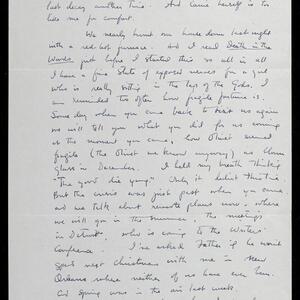 last decay another time. And Laura herself is to
like me for comfort.
We nearly burnt our house down last night
with a red hot furnace. And I read Death in the
Woods just before I started this so all in all
I have a fine state of exposed nerves for a girl
who is really sitting in the laps of the Gods. I
am reminded too often how fragile fortune is.
Some day when you come back to see us again
we will tell you what you did for us coming
at the moment you came, how Olivet seemed
fragile (the Olivet we know anyway) as blown
glass in December. I held my breath thinking
"The good die young". Only it didn't die
But the crisis was just past when you came
and we talk about remote plans now. where
we will go in the summer. the meetings
in Detroit. who is coming to the Writers'
Conference. I've asked Father if he won't
spend next Christmas with me in New
Orleans where neither of us have ever been.
And Spring was in the air last week